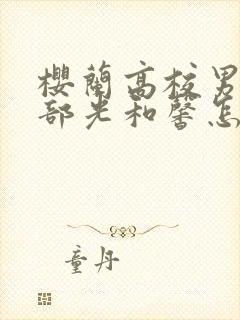 櫻蘭高校男
部光和馨怎
童丹